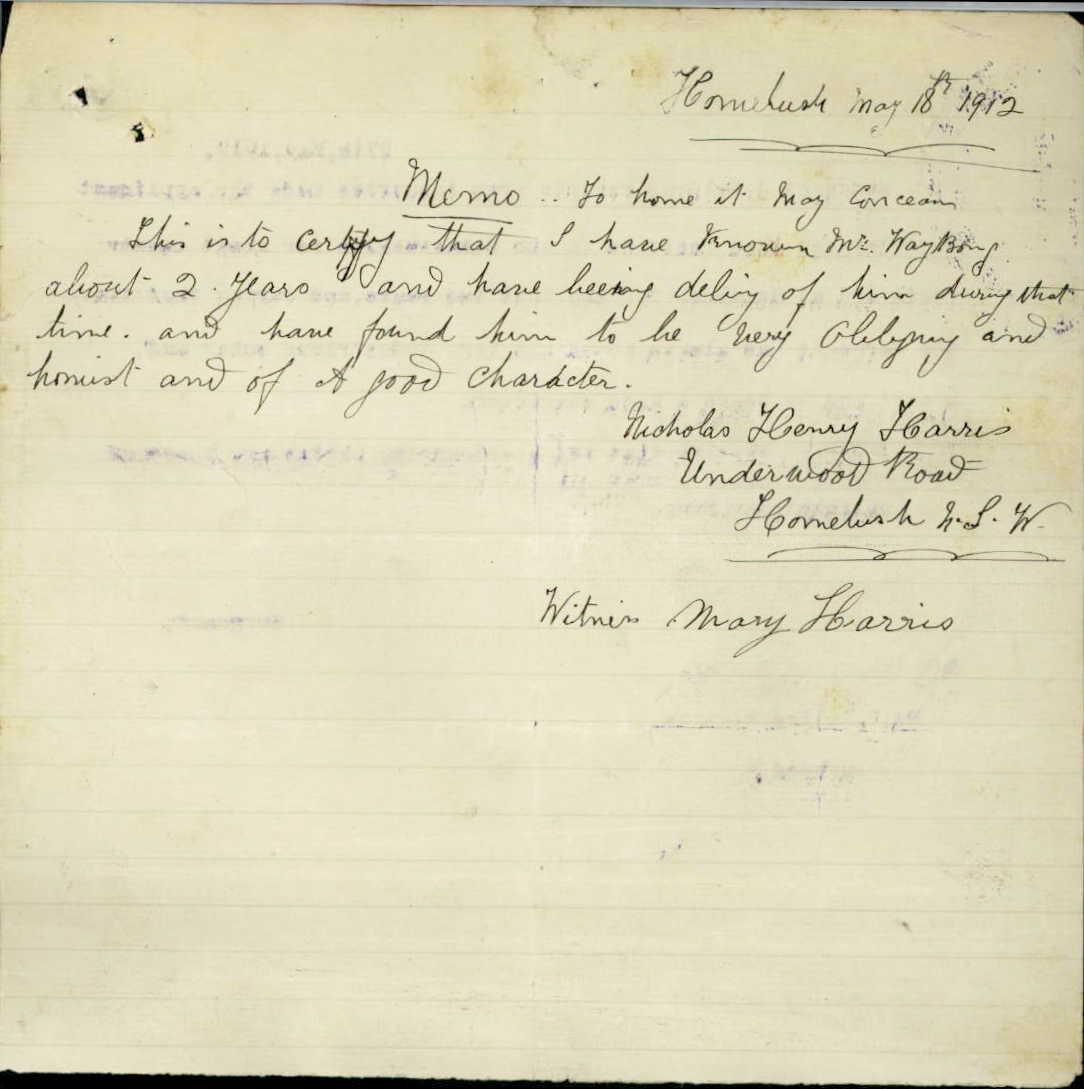 Homebush May 18th 1912
Memo .. To home it May Concearn
This is to certify that I have Known Mr. WayBong
about 2. Years and have beeing deling of him during that
time. and have found him to be very Obligying and
honist and of A good Charácter.
Nicholas Henry Harris
Underwood Road
Homebush N.S.W.
Witness Mary Harris